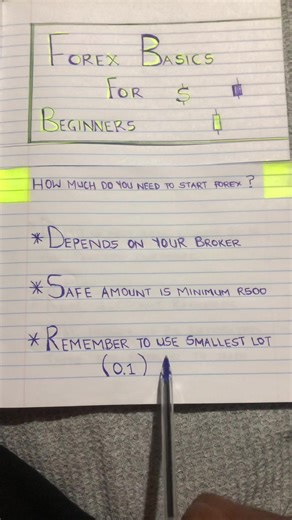 FOREX BASICS
FOR $
BEGINNERS
HOW MUCH DO YOU NEED TO START FOREX?
* DEPENDS ON YOUR BROKER
* SAFE AMOUNT IS MINIMUM R500
* REMEMBER TO USE SMALLEST LOT
(0.1)